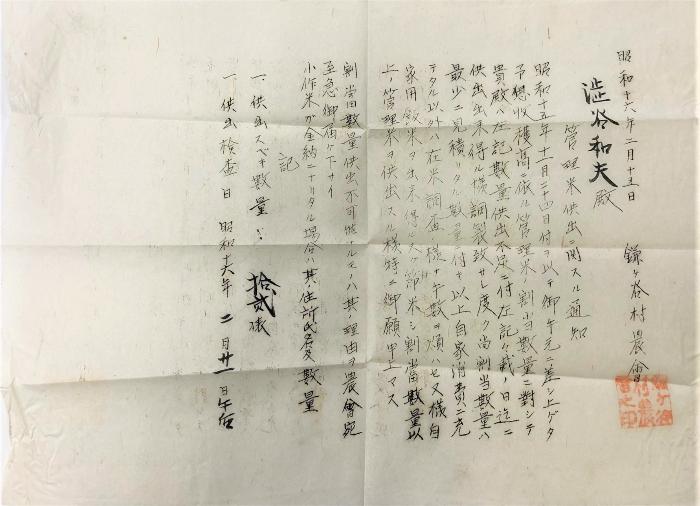 昭和十六年二月十五日
鎌ヶ谷村農會
澁谷和夫殿
管理米供出ニ関スル通知
昭和十五年十一月二十四日付ヲ以テ御手元ニ差シ上ゲタ
予想收穫高ニ依ル管理米ノ割当数量ニ対シテ
貴殿ハ左記数量供出不足ニ付左記記載ノ日迄ニ
供出出来得ル様調製致サレ度ク尚割当数量ハ
最少ニ見積リタル数量ニ付キ以上自家消費ニ充
テタル以外ハ在米調査ノ様ナ手数ヲ煩ハセヌ様自
家用飯米ヲ出来得ルダケ節米シ割当数量以
上ノ管理米ヲ供出スル様特ニ御願申上マス
割当数量供出不可能ナルモノハ其ノ理由ヲ農會宛
至急御届ケ下サイ
小作米ガ金納ニナリタル場合ハ其ノ住所氏名及数量
記
一、供出スベキ数量 拾貳俵
一、供出検査日 昭和十六年 二月廿一日午后
鎌ヶ谷
村農
會之印